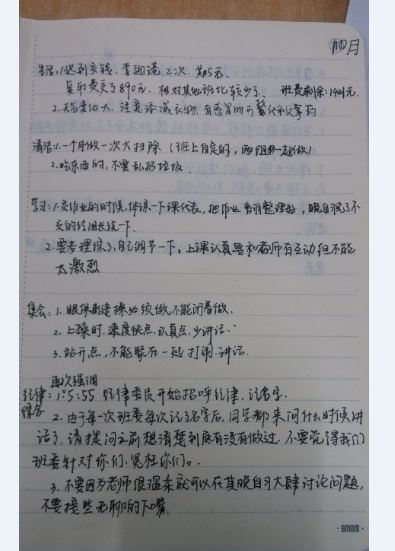 生活:1.迟到交钱 2次 共15元.
复印费交了890元, 相对其他班比较少了. 班费剩余:1941元.
2.天气变化大, 注意添减衣物 有感冒的可
清洁:1.一个月做一次大扫除 (班上自定的, 两组一起做)
2.吃东西的, 不要乱扔垃圾.
学习:1.交作业的时候, 体谅一下课代表, 把作业 整理好, 晚自习了不
交的给组长说一下.
2.要考理综了, 自己调节一下, 上课认真要和老师有互动但不能
太激烈
集会:1.眼保健操必须做, 不能闭着做.
2.上操时, 速度快点, 认真点, 少讲话.
3.站开点, 不能聚在一起打闹.讲话.
再次强调
纪律:1. 5:55 纪律委员开始招呼纪律, 记名字.
综合 2.由于每一次班委每次记了名字后, 同学都来问什么时候讲
话了, 请提问之前想清楚到底有没有做过, 不要觉得我们
班委针对你们, 冤枉你们.
3.不要因为老师很温柔就可以在其晚自习大肆讨论问题,
不要接些无聊的下嘴.